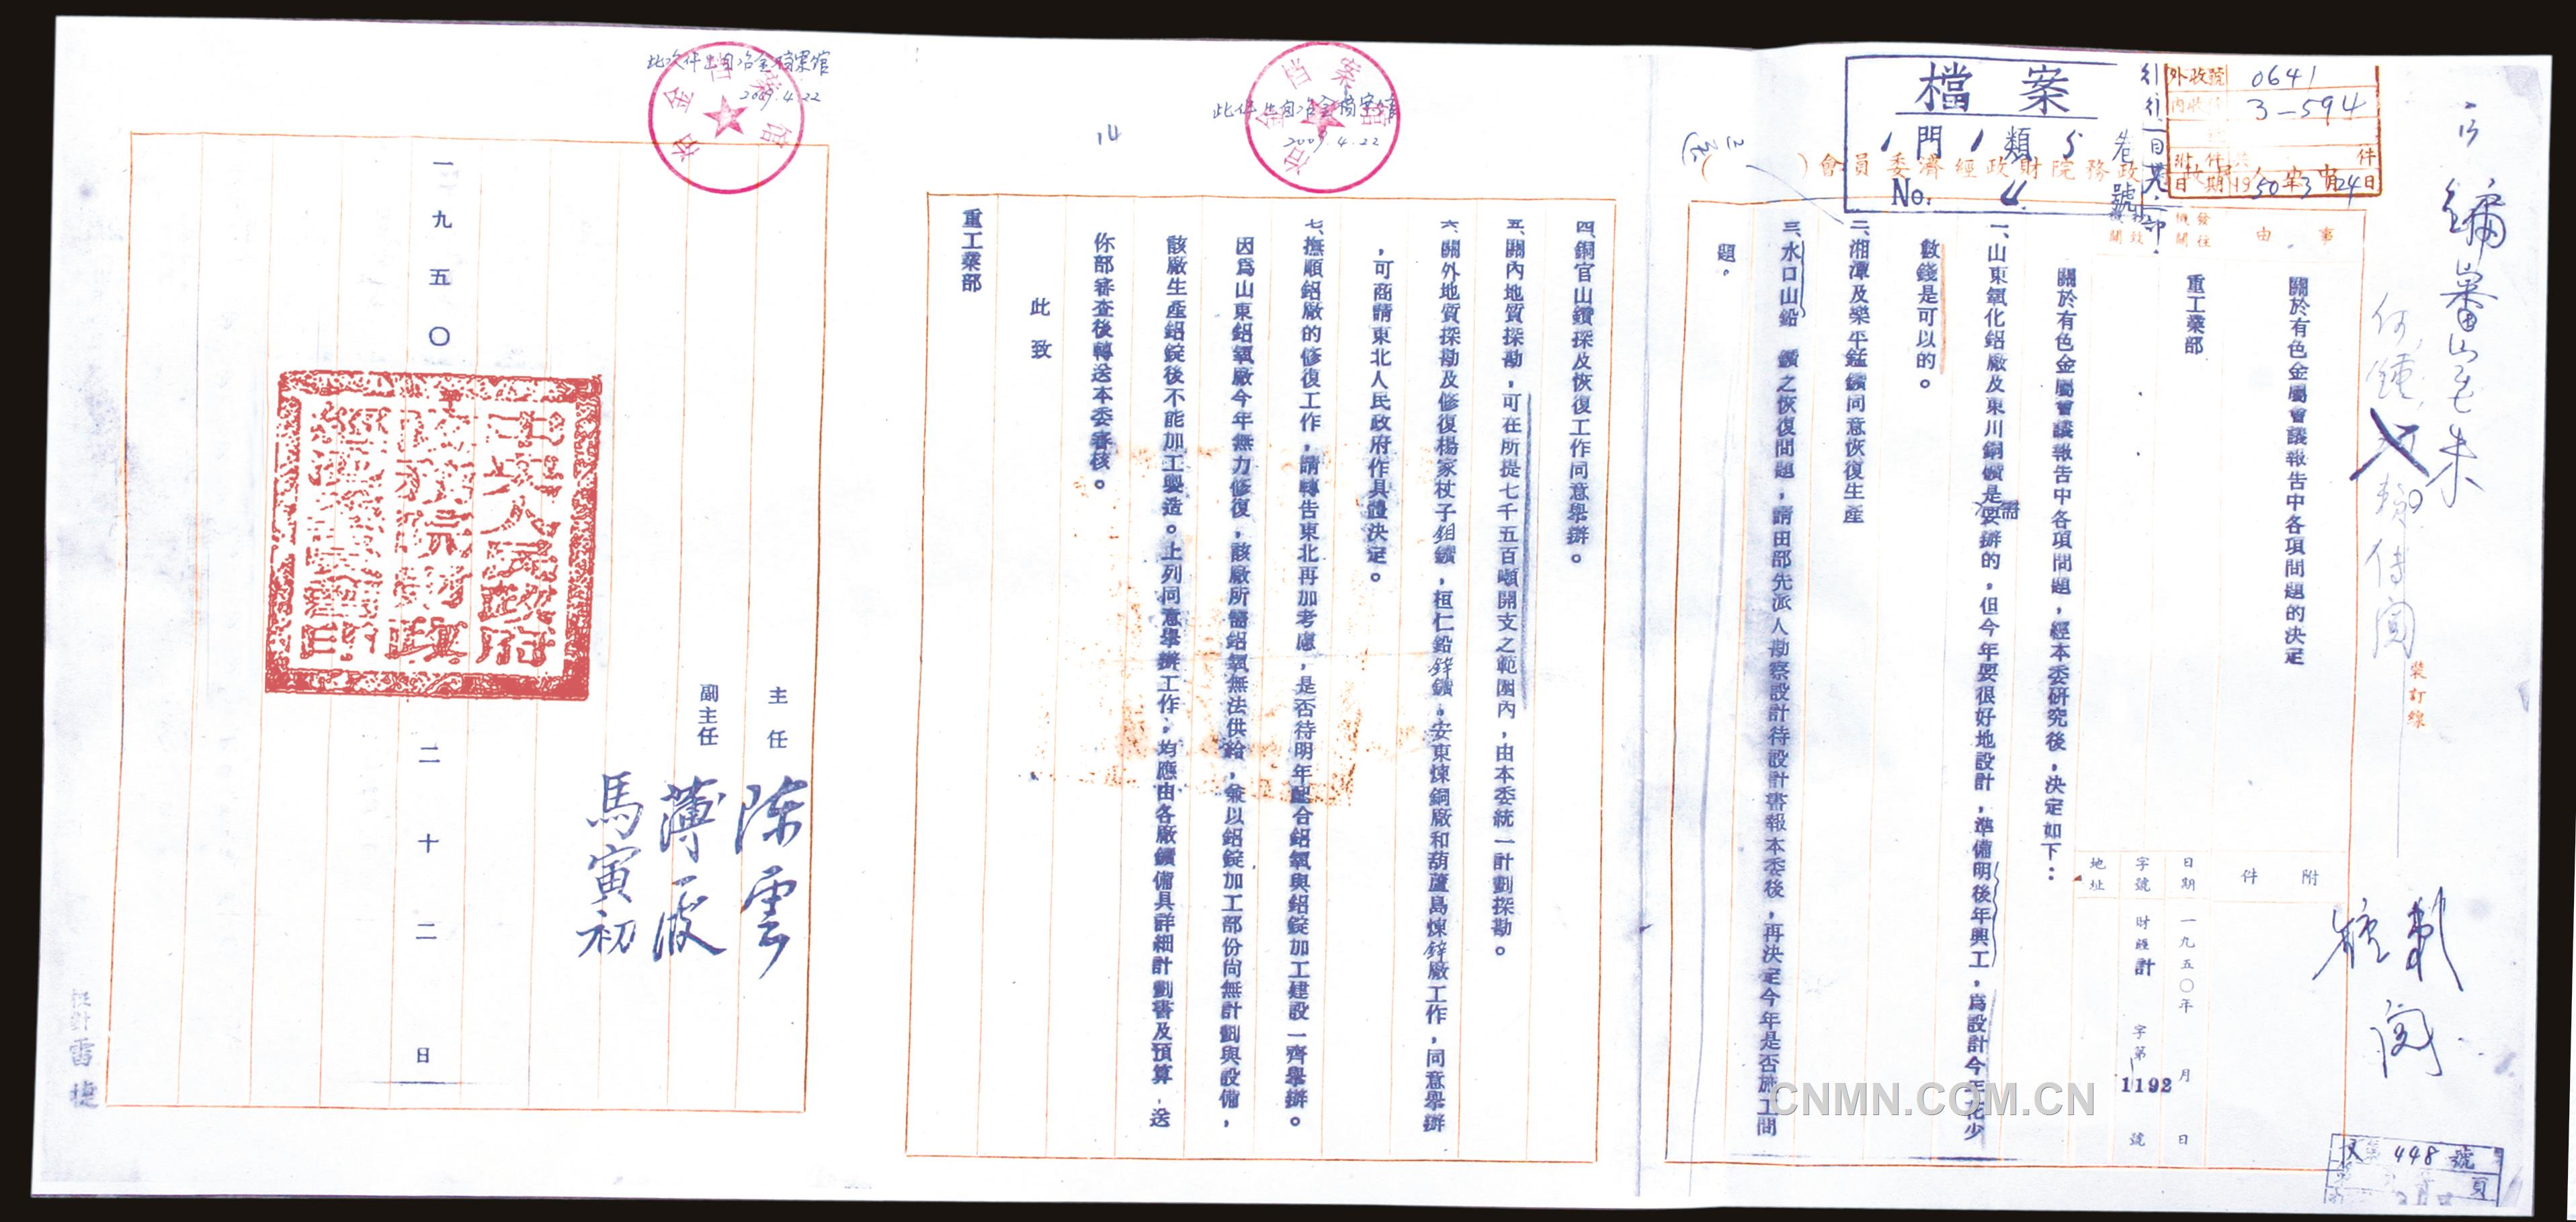 檔案
1門1類5卷
No. 4 號
外收號 0641
內收 3-594
附件 共 件
日期 1950年3月24日
政務院財政經濟委員會( )
事由
關於有色金屬會議報告中各項問題的決定
發往機關
重工業部
附件
日期 一九五〇年 月 日
字號 財經計 字第1192號
地址
裝訂線
關於有色金屬會議報告中各項問題，經本委研究後，決定如下：
一、山東氧化鋁廠及東川銅礦是需要辦的，但今年要很好地設計，準備明後年興工，爲設計今年花少
數錢是可以的。
二、湘潭及樂平錳鑛同意恢復生產
三、水口山鉛 鑛之恢復問題，請由部先派人勘察設計待設計書報本委後，再決定今年是否施工問
題。
四、銅官山鑽探及恢復工作同意舉辦。
五、關內地質探勘，可在所提七千五百噸開支之範圍內，由本委統一計劃探勘。
六、關外地質探勘及修復楊家杖子鉬鑛，桓仁鉛鋅鑛，安東煉銅廠和葫蘆島煉鋅廠工作，同意舉辦
，可商請東北人民政府作具體決定。
七、撫順鋁廠的修復工作，請轉告東北再加考慮，是否待明年配合鋁氧與鋁錠加工建設一齊舉辦。
因爲山東鋁氧廠今年無力修復，該廠所需鋁氧無法供給，兼以鋁錠加工部份尚無計劃與設備，
該廠生產鋁錠後不能加工製造。上列同意舉辦工作，均應由各廠鑛備具詳細計劃書及預算，送
你部審查後轉送本委審核。
此致
重工業部
14
此件出自冶金檔案館
2009.4.22
冶金档案馆
此文件出自冶金档案馆
2009.4.22
冶金档案馆
主任 陳雲
副主任 薄一波
馬寅初
中央人民政府
政務院財政
經濟委員會印
一九五〇 二十二日
校對 雷捷
448號
頁
CNMN.COM.CN